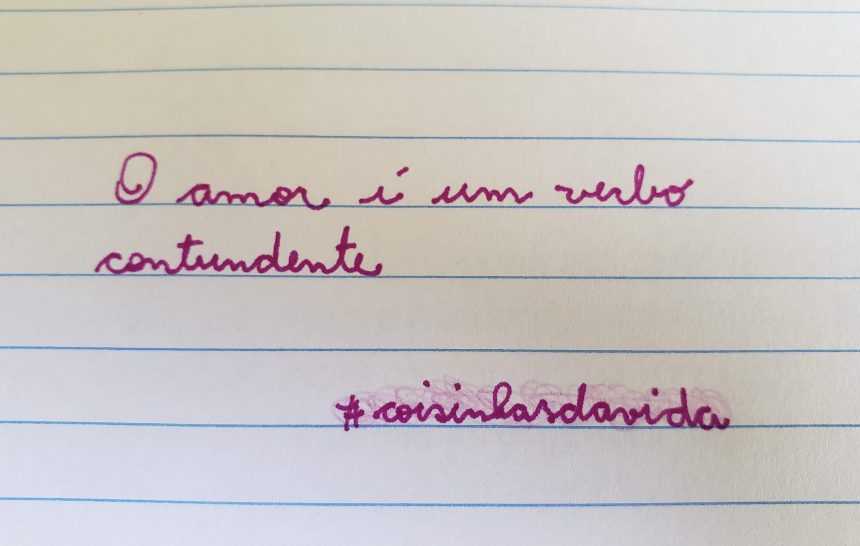 O amor é um verbo
contundente
#coisinhasdavida